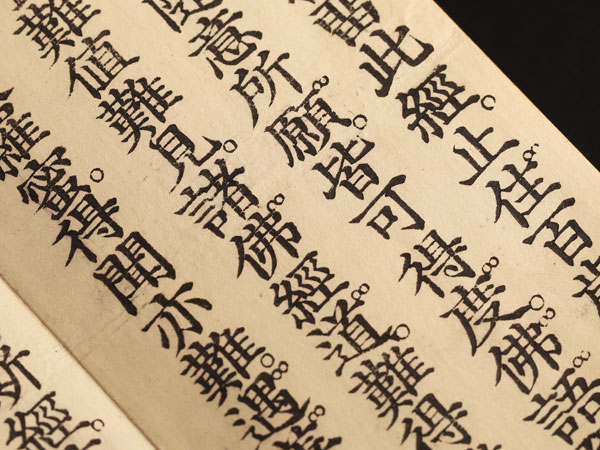 留此經止住百歲
意所願皆可得度佛語
難値難見諸佛經道難得
羅蜜得聞亦難遇
斯經